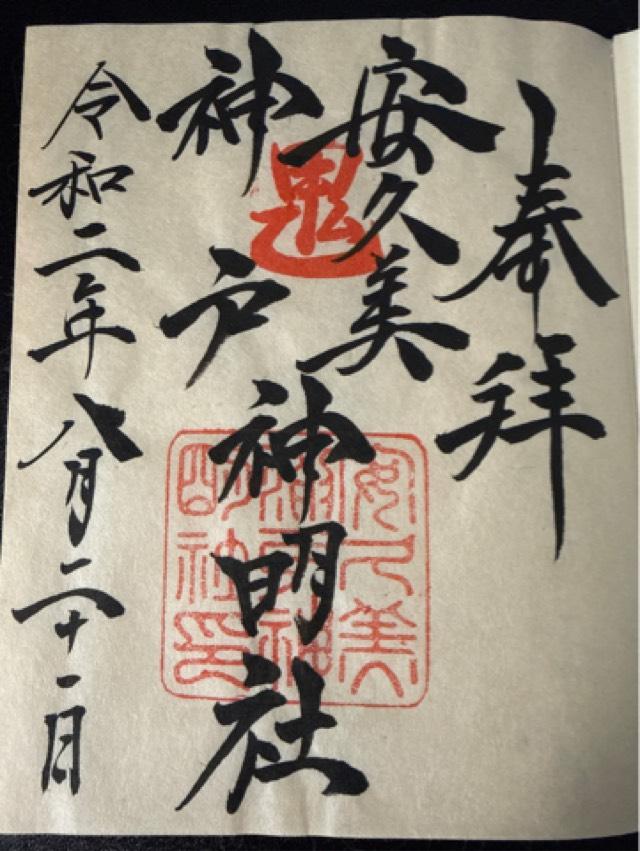 奉拝
安久美
神戸
神明社
令和二年八月二十一日
鬼
安久美
神戸神
明社印